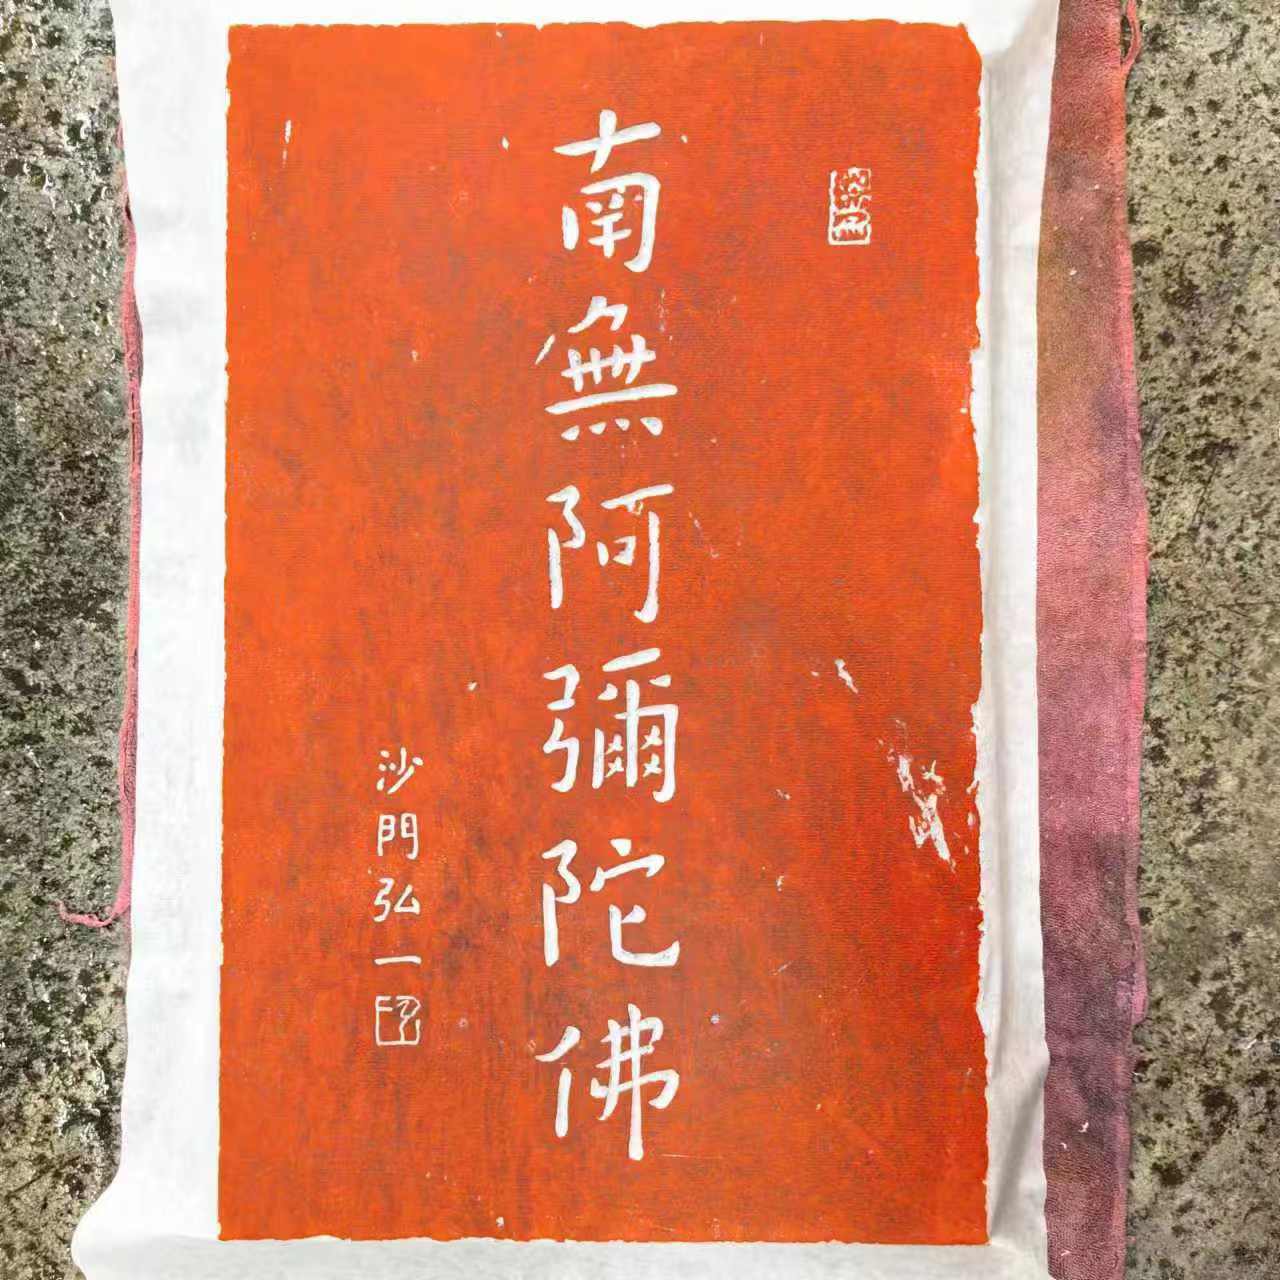 南無阿彌陀佛
沙門弘一